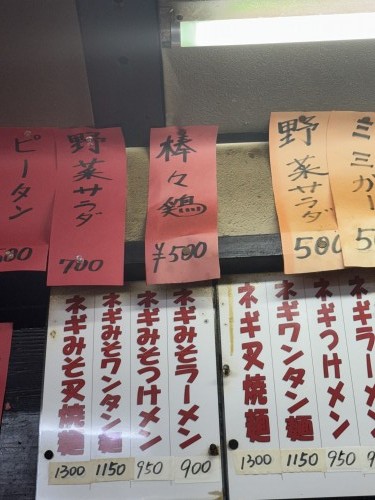 ピータン
野菜サラダ
700
棒々鶏
¥500
野菜サラダ
500
ミミガー
ネギみそ叉焼麺
1300
ネギみそワンタン麺
1150
ネギみそつけメン
950
ネギみそラーメン
900
ネギ叉焼麺
1300
ネギワンタン麺
1150
ネギつけメン
950
ネギラーメン